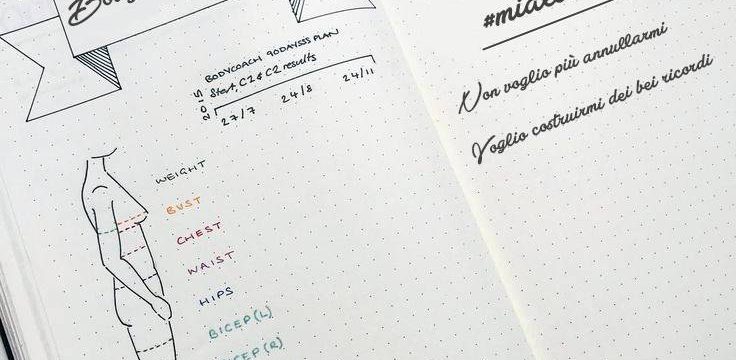 BODYCOACH 90DAYSSS PLAN
Start, C2 & C2 results
2015
27/7 24/8 24/11
WEIGHT
BUST
CHEST
WAIST
HIPS
BICEP(L)
CEP(R)
Non voglio più annullarmi
Voglio costruirmi dei bei ricordi